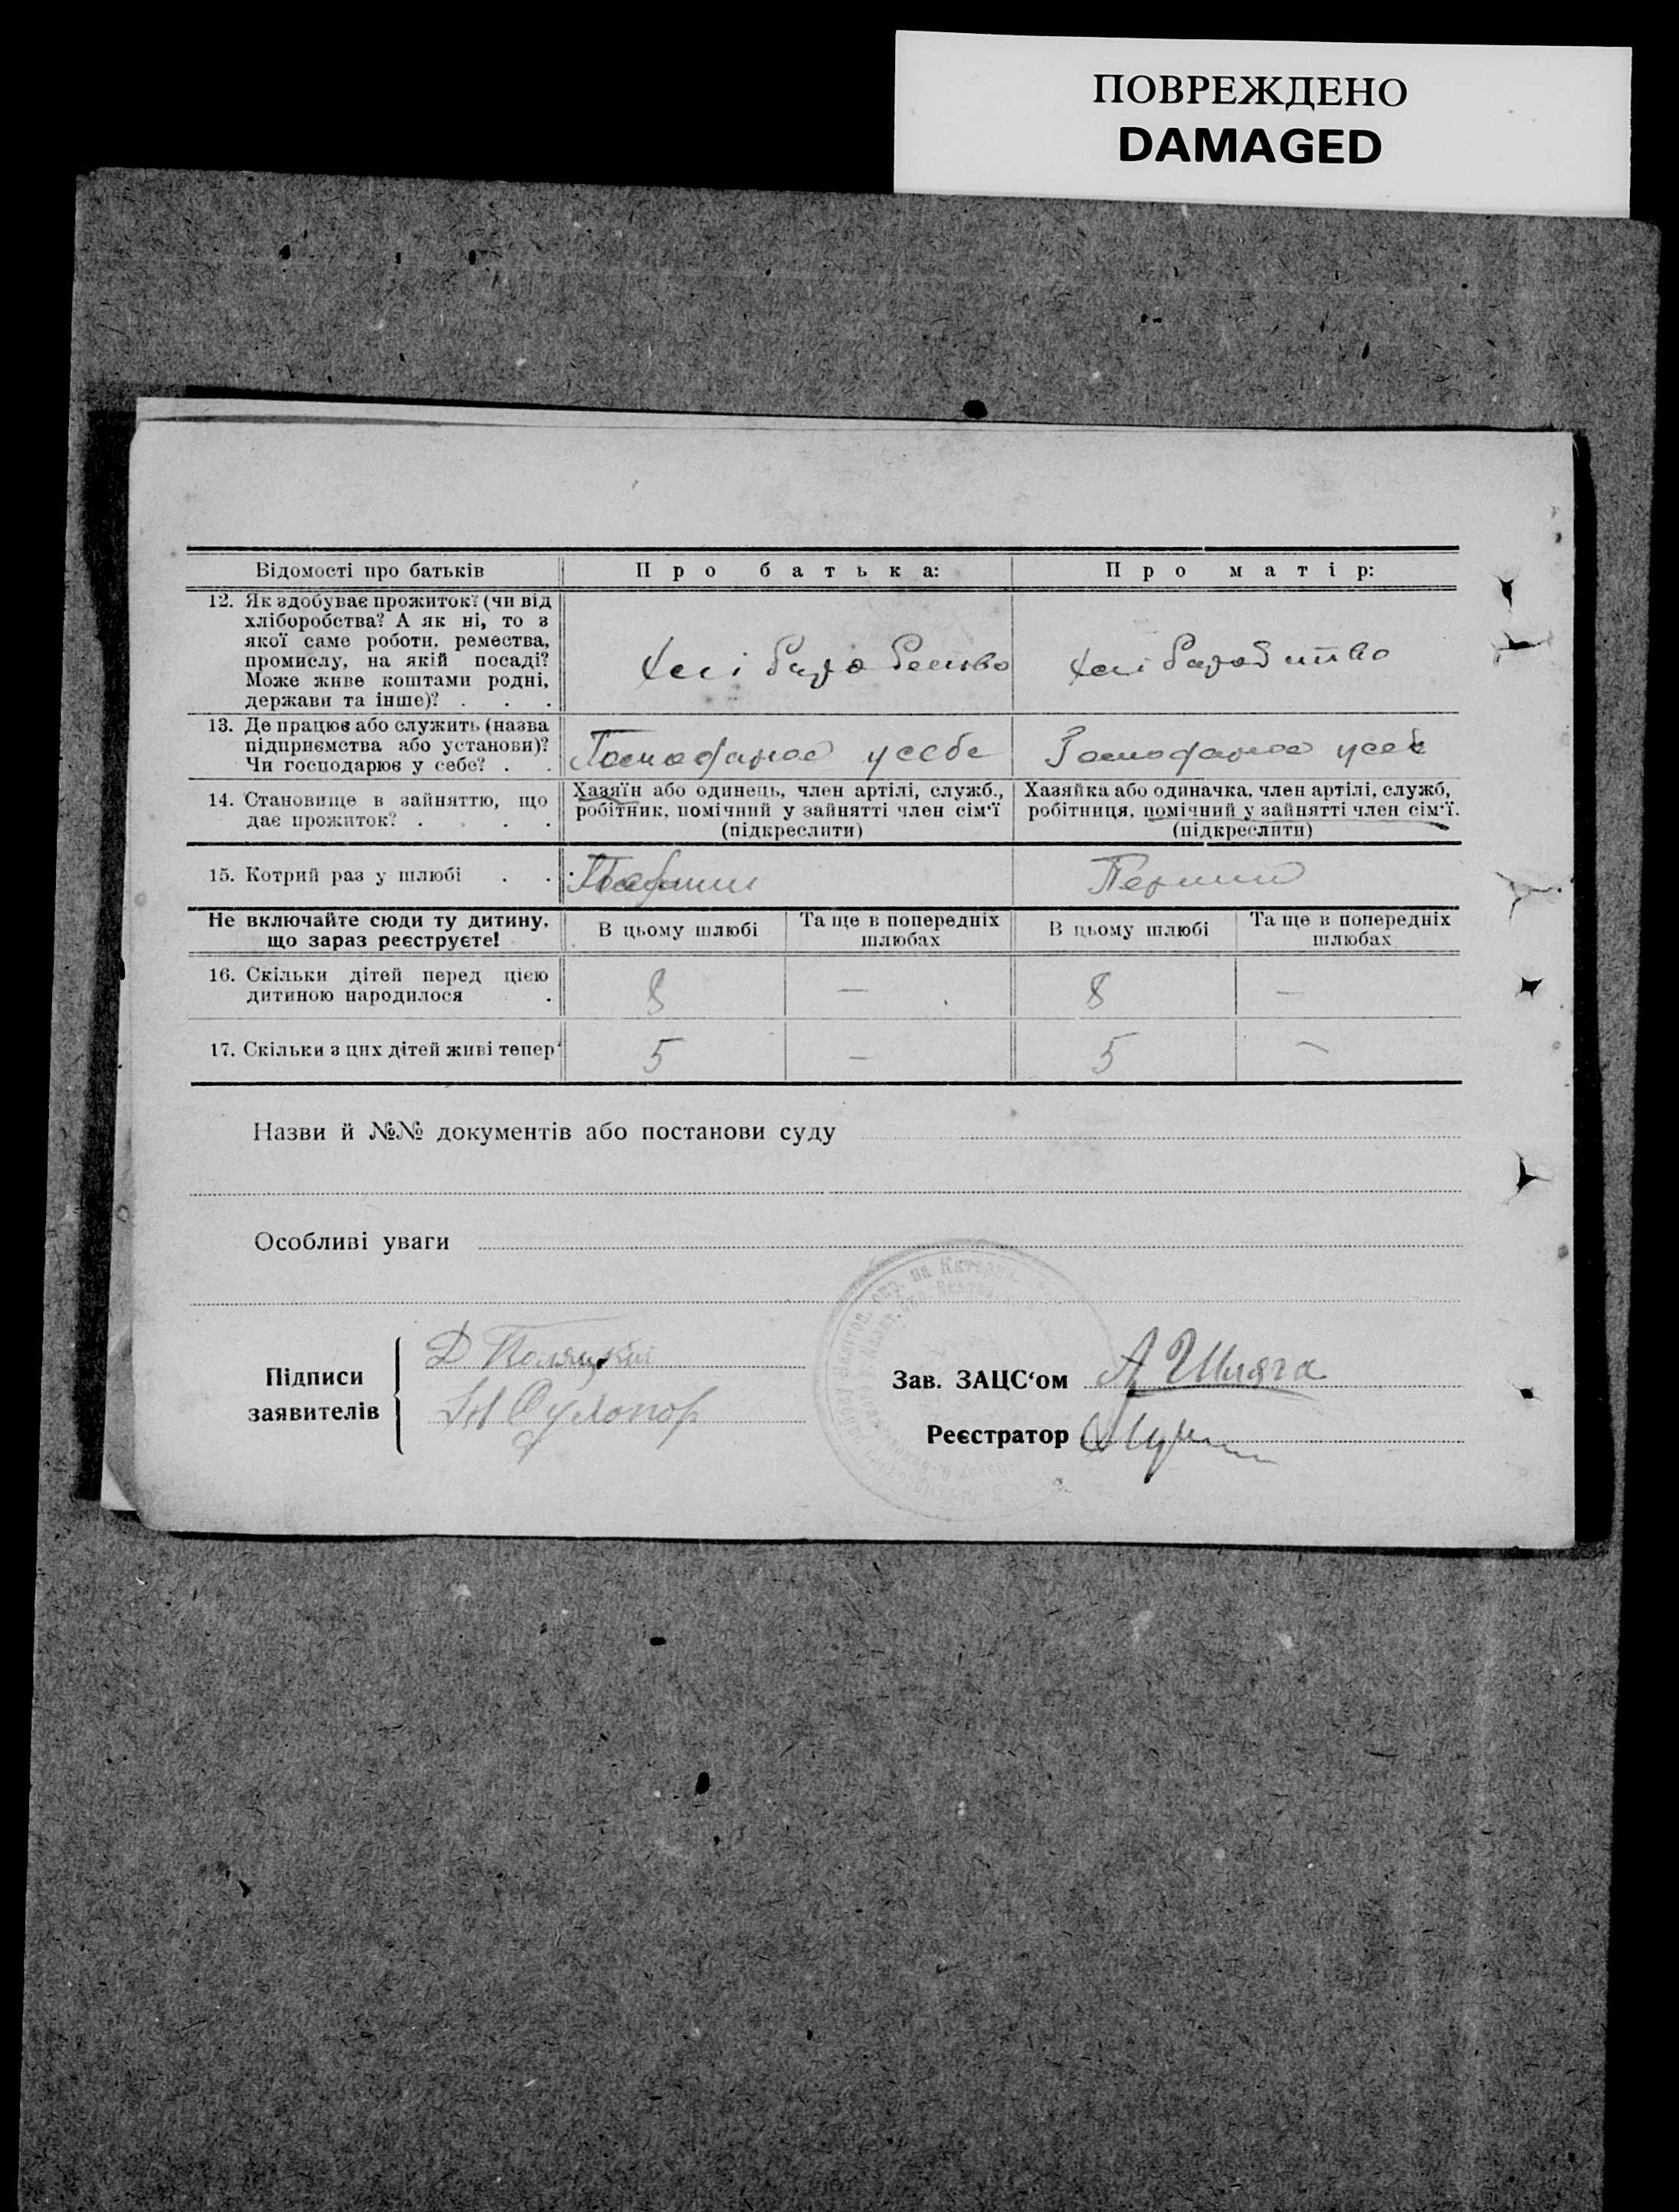 ПОВРЕЖДЕНО
DAMAGED
Відомості про батьків
Про батька:
Про матір:
12. Як здобуває прожиток? (чи від
хліборобства? А як ні, то з
якої саме роботи, ремества,
промислу, на якій посаді?
Може живе коштами родні,
держави та інше)? . . .
Хлі боробство
Хлі боробство
13. Де працює або служить (назва
підприємства або установи)?
Чи господарює у себе? . .
Господарює усебе
Господарює усебе
14. Становище в зайняттю, що
дає прожиток? . . .
Хазяїн або одинець, член артілі, служб.,
робітник, помічний у зайнятті член сім'ї
(підкреслити)
Хазяйка або одиначка, член артілі, служб,
робітниця, помічний у зайнятті член сім'ї.
(підкреслити)
15. Котрий раз у шлюбі . .
Перший
Не включайте сюди ту дитину,
що зараз реєструєте!
В цьому шлюбі
Та ще в попередніх
шлюбах
В цьому шлюбі
Та ще в попередніх
шлюбах
16. Скільки дітей перед цією
дитиною народилося .
8
—
8
—
17. Скільки з цих дітей живі тепер
5
—
5
—
Назви й №№ документів або постанови суду
Особливі уваги
Підписи
заявителів
Д Поляцкий
Зав. ЗАЦС'ом
А Шляга
Реєстратор